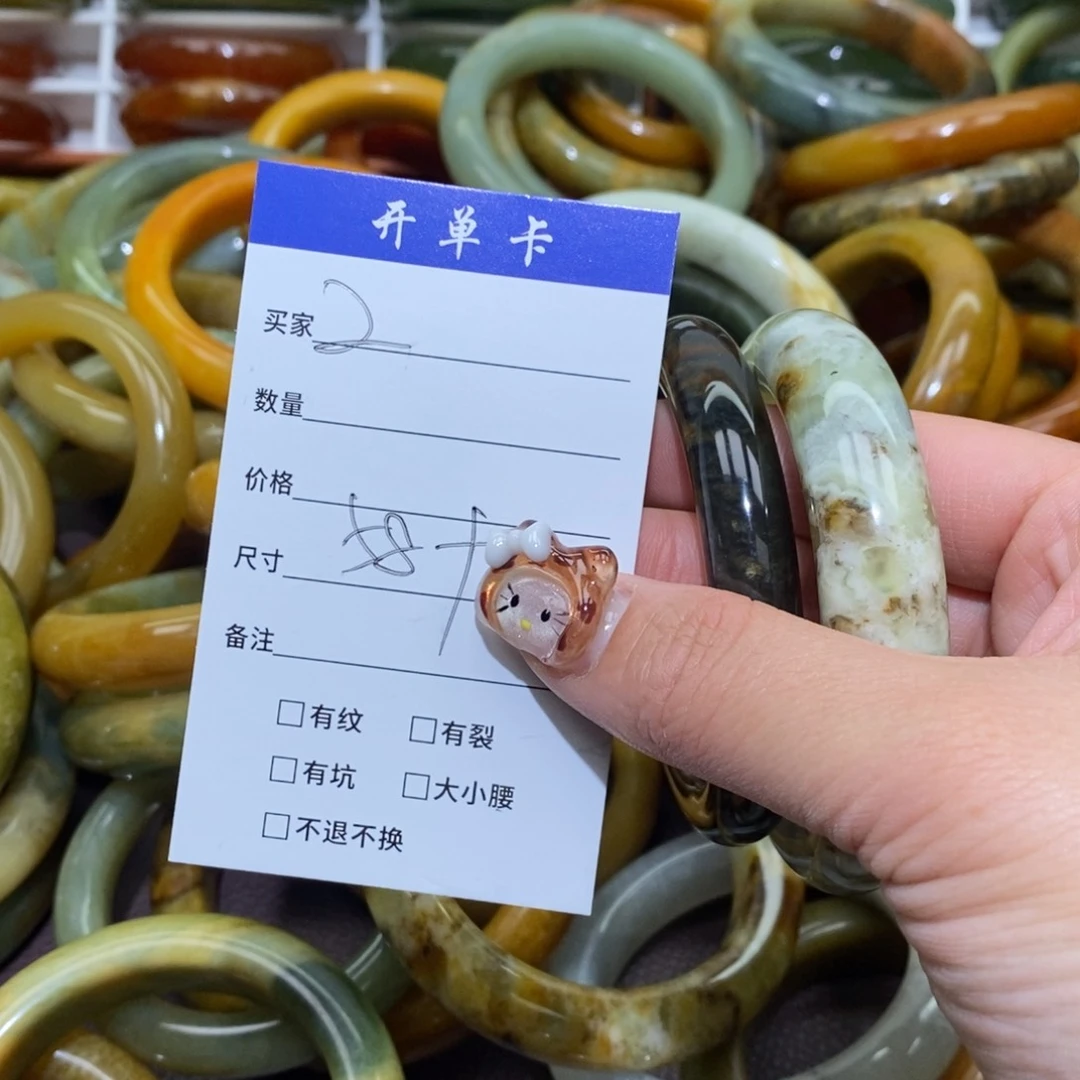 开单卡
买家 2
数量
价格
尺寸
备注
□有纹 □有裂
□有坑 □大小腰
□不退不换